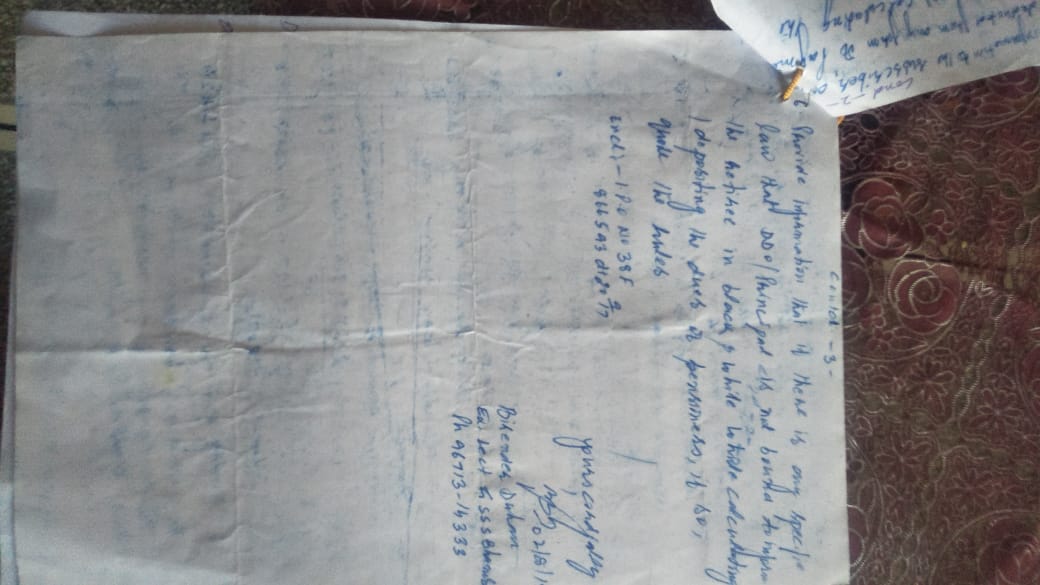 Contd -3-
6- Provide information that if there is any specific
law that DDO/Principal is not bound to inform
the retiree in black & white while calculating
/depositing the dues of pensioners, if so,
quote the rules
encl:- I P.O No 38F
866593
yours candfully
02/8/
Birender Duhan
Ex Lect GSSS
Ph 96713-14333
Contd -2-
information to the subscriber
deducted from any plan
calculating the